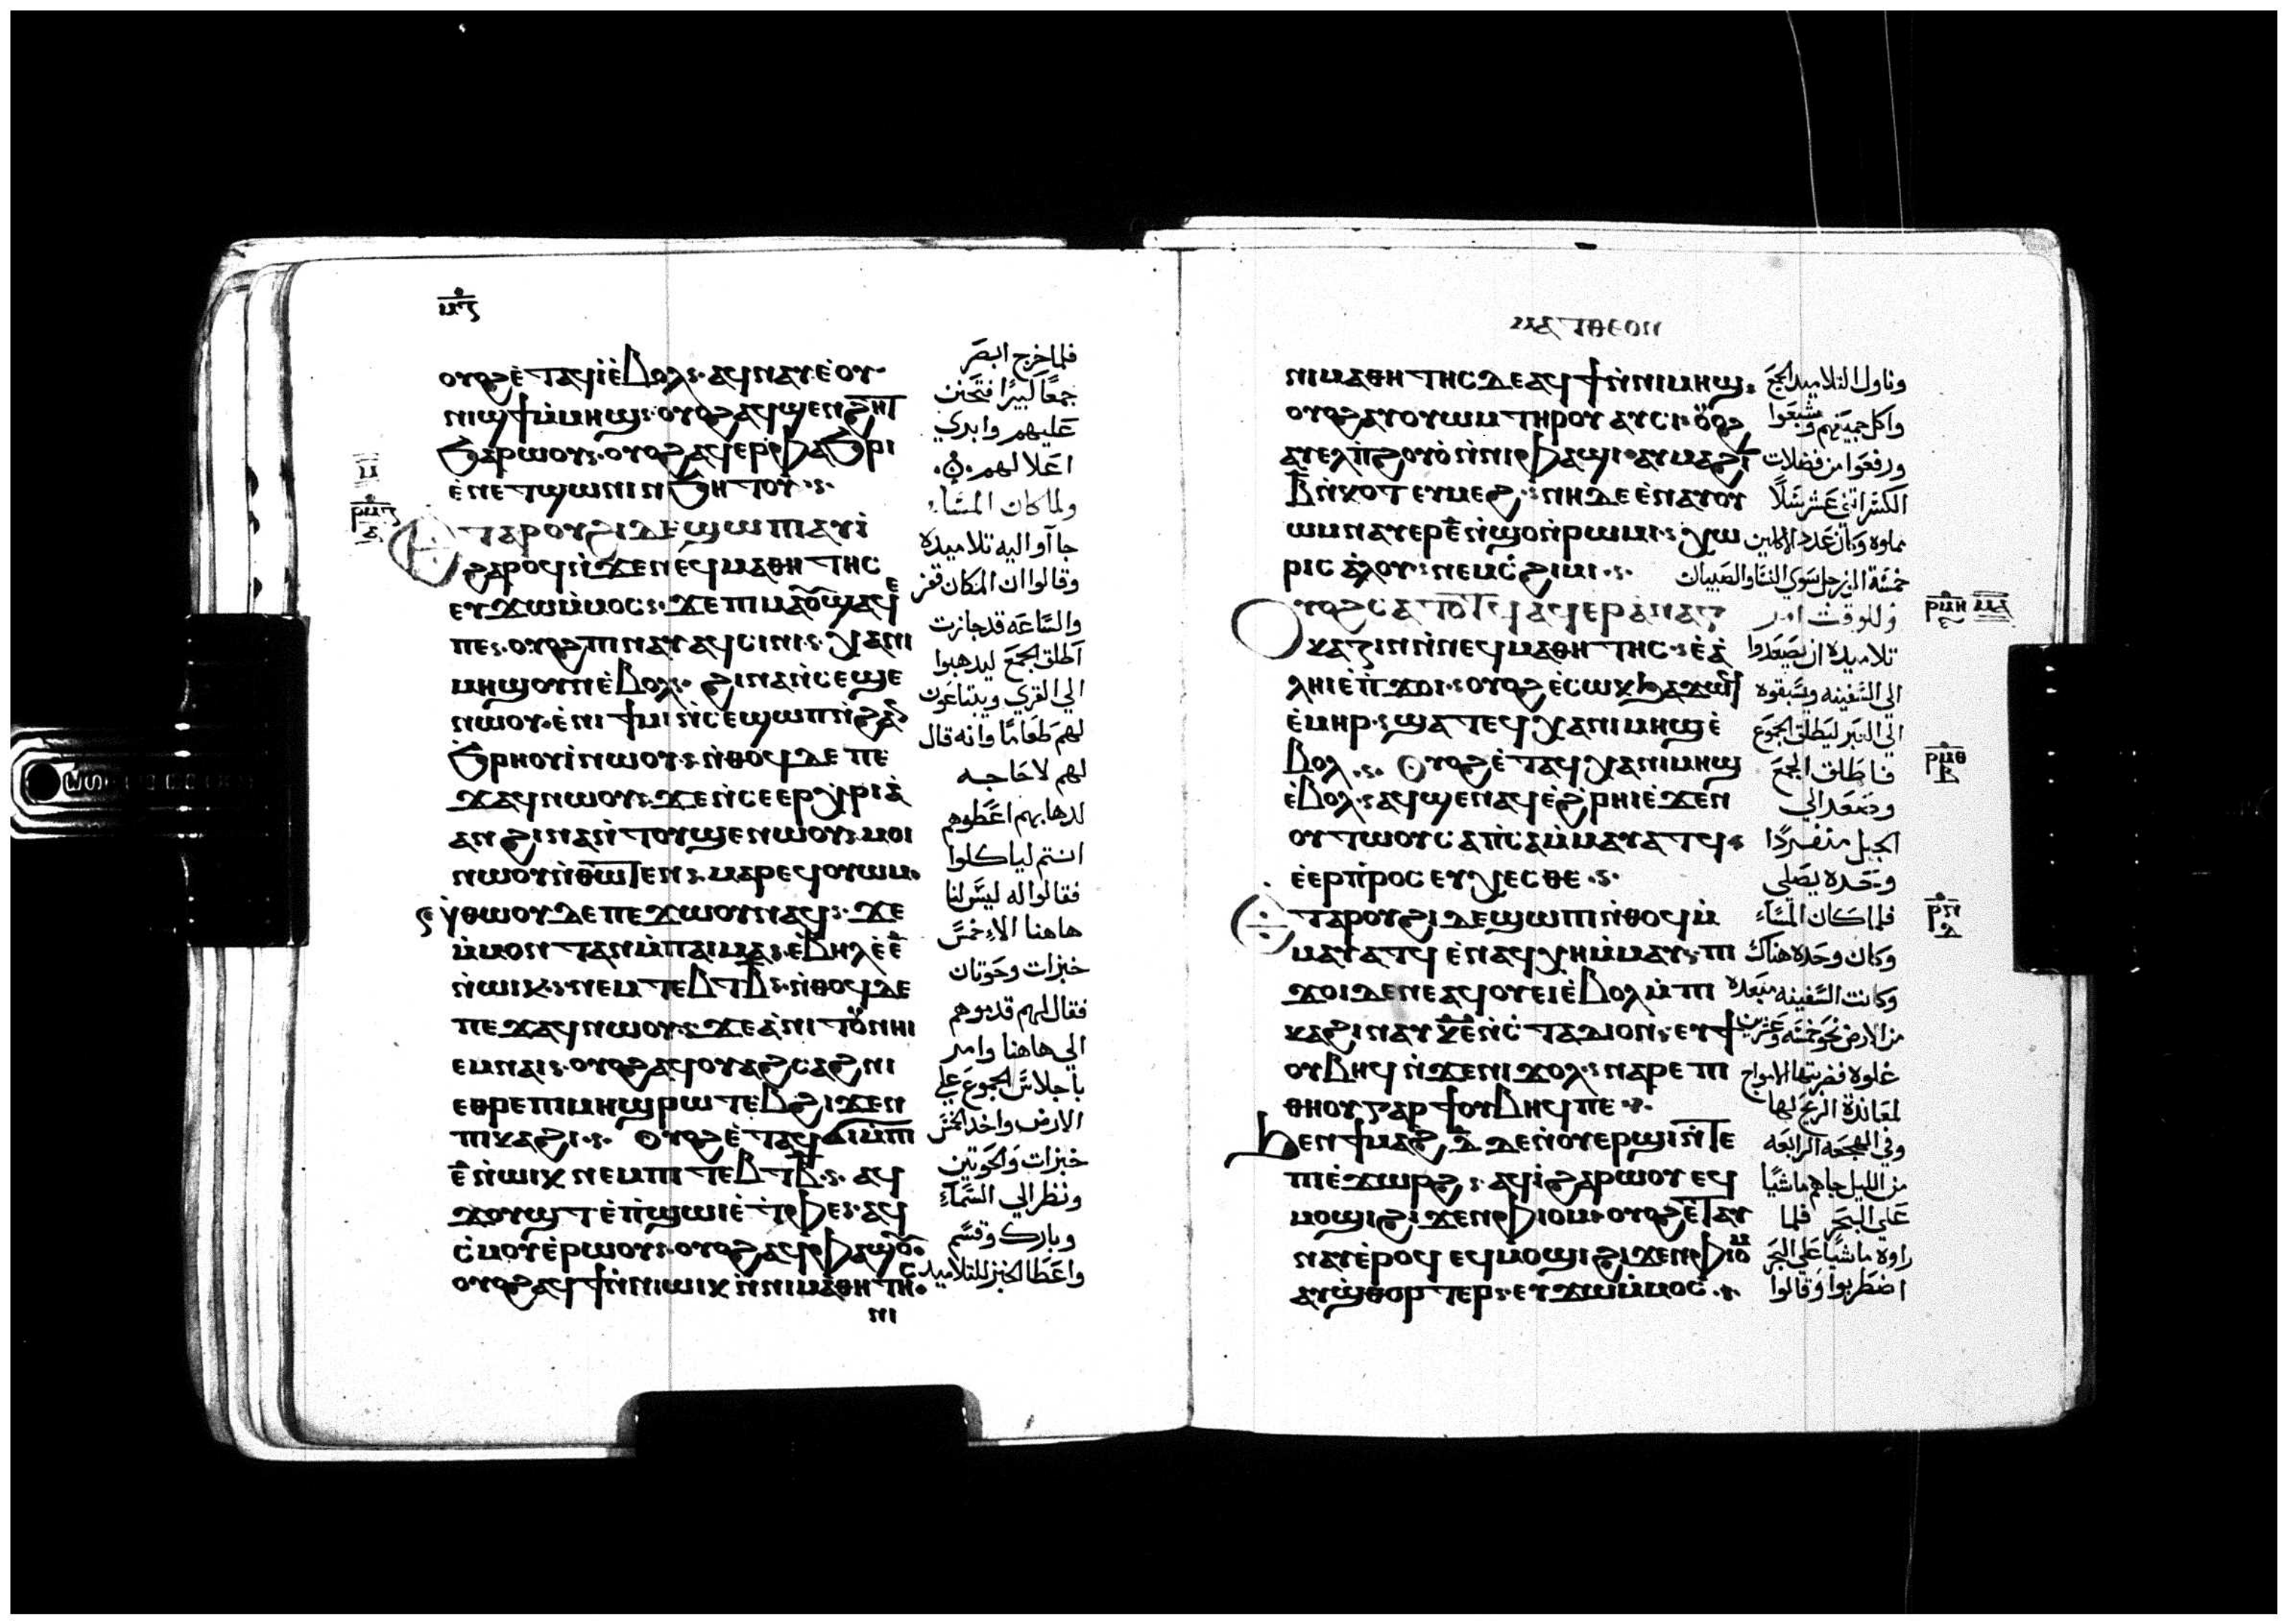 ⲙⲍ
ⲟⲩⲟϩ ⲉ̇ⲧⲁϥⲓ̇ ⲉ̇ⲃⲟⲗ ⲁϥⲛⲁⲩ ⲉ̇ⲟⲩ
ⲛⲓϣϯ ⲙ̇ⲙⲏϣ ⲟⲩⲟϩ ⲁϥϣⲉⲛϩⲏⲧ
ϧⲁⲣⲱⲟⲩ ⲟⲩⲟϩ ⲁϥⲉⲣⲫⲁϧⲣⲓ
ⲉ̇ⲛⲉⲧϣⲱⲛⲓ ⲛ̇ϧⲏⲧⲟⲩ
ⲉⲧⲁ ⲣⲟⲩϩⲓ ⲇⲉ ϣⲱⲡⲓ ⲁⲩⲓ̇
ϩⲁⲣⲟϥ ⲛ̇ϫⲉ ⲛⲉϥⲙⲁⲑⲏⲧⲏⲥ
ⲉⲩϫⲱ ⲙ̇ⲙⲟⲥ ϫⲉ ⲡⲓⲙⲁ ⲟⲩϣⲁϥⲉ
ⲡⲉ ⲟⲩⲟϩ ⲡⲓⲛⲁⲩ ⲁϥⲥⲓⲛⲓ ⲭⲁ ⲛⲓ
ⲙⲏϣ ⲟⲩⲛ ⲉ̇ⲃⲟⲗ ϩⲓⲛⲁ ⲛ̇ⲥⲉϣⲉ
ⲛⲱⲟⲩ ⲉ̇ⲛⲓϯⲙⲓ ⲛ̇ⲥⲉϣⲱⲡ ⲛ̇ϩⲁⲛ
ϧⲣⲏⲟⲩⲓ̇ ⲛⲱⲟⲩ ⲛ̇ⲑⲟϥ ⲇⲉ ⲡⲉ
ϫⲁϥ ⲛⲱⲟⲩ ϫⲉ ⲛ̇ⲥⲉⲉⲣⲭⲣⲓⲁ̇
ⲁⲛ ϩⲓⲛⲁ ⲛ̇ⲧⲟⲩϣⲉ ⲛⲱⲟⲩ ⲙⲟⲓ
ⲛⲱⲟⲩ ⲛ̇ⲑⲱⲧⲉⲛ ⲙⲁⲣⲉϥⲟⲩⲱⲙ
ⲛ̇ⲑⲱⲟⲩ ⲇⲉ ⲡⲉϫⲱⲟⲩ ⲛⲁϥ ϫⲉ
ⲙ̇ⲙⲟⲛⲧⲁⲛ ⲙ̇ⲡⲁⲓⲙⲁ ⲉ̇ⲃⲏⲗ ⲉ̇ⲉ̅
ⲛ̇ⲱⲓⲕ ⲛⲉⲙ ⲧⲉⲃⲧ ⲃ̅ ⲛ̇ⲑⲟϥ ⲇⲉ
ⲡⲉϫⲁϥ ⲛⲱⲟⲩ ϫⲉ ⲁ̇ⲛⲓⲧⲟⲩ ⲛⲏⲓ
ⲉⲙⲛⲁⲓ ⲟⲩⲟϩ ⲁϥⲟⲩⲁϩⲥⲁϩⲛⲓ
ⲉⲑⲣⲉ ⲡⲓⲙⲏϣ ⲣⲱⲧⲉⲃ ϩⲓϫⲉⲛ
ⲡⲓⲕⲁϩⲓ ⲟⲩⲟϩ ⲉ̇ⲧⲁϥϭⲓ ⲙ̇ⲡⲓ
ⲉ̅ ⲛ̇ⲱⲓⲕ ⲛⲉⲙ ⲡⲓⲧⲉⲃⲧ ⲃ̅ ⲁϥ
ϫⲟⲩϣⲧ ⲉ̇ⲡ̇ϣⲱⲓ ⲉ̇ⲧ̇ⲫⲉ ⲁϥ
ⲥ̇ⲙⲟⲩ ⲉ̇ⲣⲱⲟⲩ ⲟⲩⲟϩ ⲁϥⲫⲁϣⲟⲩ
ⲟⲩⲟϩ ⲁϥϯ ⲛ̇ⲛⲓⲱⲓⲕ ⲛ̇ⲛⲓⲙⲁⲑⲏⲧⲏⲥ
ⲛⲓ
فلما خرج ابصر
جمعًا كبيرًا فتحنن
عليهم وابري
اعلالهم
ولما كان المساء
جاآو اليه تلاميده
وقالوا ان المكان قفر
والساعه قد جازت
اطلق الجمع ليدهبوا
الي القري ويبتاعون
لهم طعامًا وانه قال
لهم لا حاجه
لدهابهم اعطوهم
انتم لياكلوا
فقالوا له ليس لنا
هاهنا الا خمس
خبزات وحوتان
فقال لهم قدموهم
الي هاهنا وامر
باجلاس الجموع علي
الارض واخد الخمس
خبزات والحوتين
ونظر الي السماء
وبارك وقسم
واعطا الخبز للتلاميد
ⲙⲁⲧⲑⲉⲟⲛ
ⲛⲓⲙⲁⲑⲏⲧⲏⲥ ⲇⲉ ⲁϥϯ ⲛ̇ⲛⲓⲙⲏϣ
ⲟⲩⲟϩ ⲁⲩⲟⲩⲱⲙ ⲧⲏⲣⲟⲩ ⲁⲩⲥⲓ ⲟⲩⲟϩ
ⲁⲩⲉⲗ ⲡ̇ϩⲟⲩⲟ̇ ⲛ̇ⲛⲓⲫⲁϣⲓ ⲁⲩⲙⲁϩ ⲓ̅
ⲃ̅ ⲛ̇ⲕⲟⲧ ⲉⲩⲙⲉϩ ⲛⲏ ⲇⲉ ⲉ̇ⲛⲁⲩⲟⲩ
ⲱⲙ ⲛⲁⲩⲉⲣ ⲉ̅ ⲛ̇ϣⲟ ⲛ̇ⲣⲱⲙⲓ ⲭⲱ
ⲣⲓⲥ ⲁ̇ⲗⲟⲩ ⲛⲉⲙ ⲥ̇ϩⲓⲙⲓ
ⲟⲩⲟϩ ⲥⲁⲧⲟⲧϥ ⲁϥⲉⲣⲁⲛⲁⲅ
ⲕⲁⲍⲓⲛ ⲛ̇ⲛⲉϥⲙⲁⲑⲏⲧⲏⲥ ⲉ̇ⲁ̇
ⲗⲏⲓ ⲉ̇ⲡ̇ϫⲟⲓ ⲟⲩⲟϩ ⲉ̇ⲥⲱⲕ ϧⲁϫⲱϥ
ⲉ̇ⲙⲏⲣ ϣⲁⲧⲉϥⲭⲁ ⲡⲓⲙⲏϣ ⲉ̇
ⲃⲟⲗ ⲟⲩⲟϩ ⲉ̇ⲧⲁϥⲭⲁ ⲡⲓⲙⲏϣ
ⲉ̇ⲃⲟⲗ ⲁϥϣⲉⲛⲁϥ ⲉ̇ϩ̇ⲣⲏⲓ ⲉ̇ϫⲉⲛ
ⲟⲩⲧⲱⲟⲩ ⲥⲁⲡ̇ⲥⲁ ⲙ̇ⲙⲁⲩⲁⲧϥ
ⲉ̇ⲉⲣⲡ̇ⲣⲟⲥⲉⲩⲭⲉⲥⲑⲉ
ⲉⲧⲁ ⲣⲟⲩϩⲓ ⲇⲉ ϣⲱⲡⲓ ⲛ̇ⲑⲟϥ ⲙ̇
ⲙⲁⲩⲁⲧϥ ⲉ̇ⲛⲁϥⲭⲏ ⲙ̇ⲙⲁⲩ ⲡⲓ
ϫⲟⲓ ⲇⲉ ⲛⲉⲁϥⲟⲩⲉⲓ ⲉ̇ⲃⲟⲗ ⲙ̇ⲡⲓ
ⲕⲁϩⲓ ⲛⲁⲩ ⲕ̅ⲉ̅ ⲛ̇ⲥ̇ⲧⲁⲇⲓⲟⲛ ⲉⲩϯ
ⲟⲩⲃⲏϥ ⲛ̇ϫⲉ ⲛⲓϫⲟⲗ ⲛⲁⲣⲉ ⲡⲓ
ⲑⲏⲟⲩ ⲅⲁⲣ ϯ ⲟⲩⲃⲏϥ ⲡⲉ
ϧⲉⲛ ϯⲙⲁϩ ⲇ̅ ⲇⲉ ⲛ̇ⲟⲩⲉⲣϣⲓ ⲛ̇ⲧⲉ
ⲡⲓⲉ̇ϫⲱⲣϩ ⲁϥⲓ̇ ϩⲁⲣⲱⲟⲩ ⲉϥ
ⲙⲟϣⲓ ϩⲓϫⲉⲛ ⲫⲓⲟⲙ ⲟⲩⲟϩ ⲉ̇ⲧⲁⲩ
ⲛⲁⲩ ⲉ̇ⲣⲟϥ ⲉϥⲙⲟϣⲓ ϩⲓϫⲉⲛ ⲫⲓⲟⲙ
ⲁⲩϣ̇ⲑⲟⲣⲧⲉⲣ ⲉⲩϫⲱ ⲙ̇ⲙⲟⲥ
وناول التلاميد الجمع
واكل جميعهم وشبعوا
ورفعوا من فضلات
الكسر اثني عشر سلًا
مملوه وكان عدد الاكلين
خمسة الف رجل سوي النسا والصبيان
وللوقت امر
تلاميده ان يصعدوا
الي السفينه ويسبقوه
الي العبر ليطلق الجموع
فاطلق الجمع
وصعد الي
الجبل منفردًا
وحده يصلي
فلما كان المساء
وكان وحده هناك
وكانت السفينه مبعده
من الارض نحو خمسه وعشرين
غلوه فضربتها الامواج
لمعاندة الريح لها
وفي الهجعه الرابعه
من الليل جاهم ماشيًا
علي البحر فلما
راوه ماشيًا علي البحر
اضطربوا وقالوا
ⲣⲙⲏ ⲙⲁ
ⲣⲙⲑ
ⲣⲛ